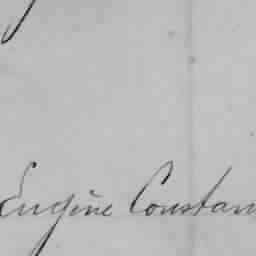 Eugène Constan